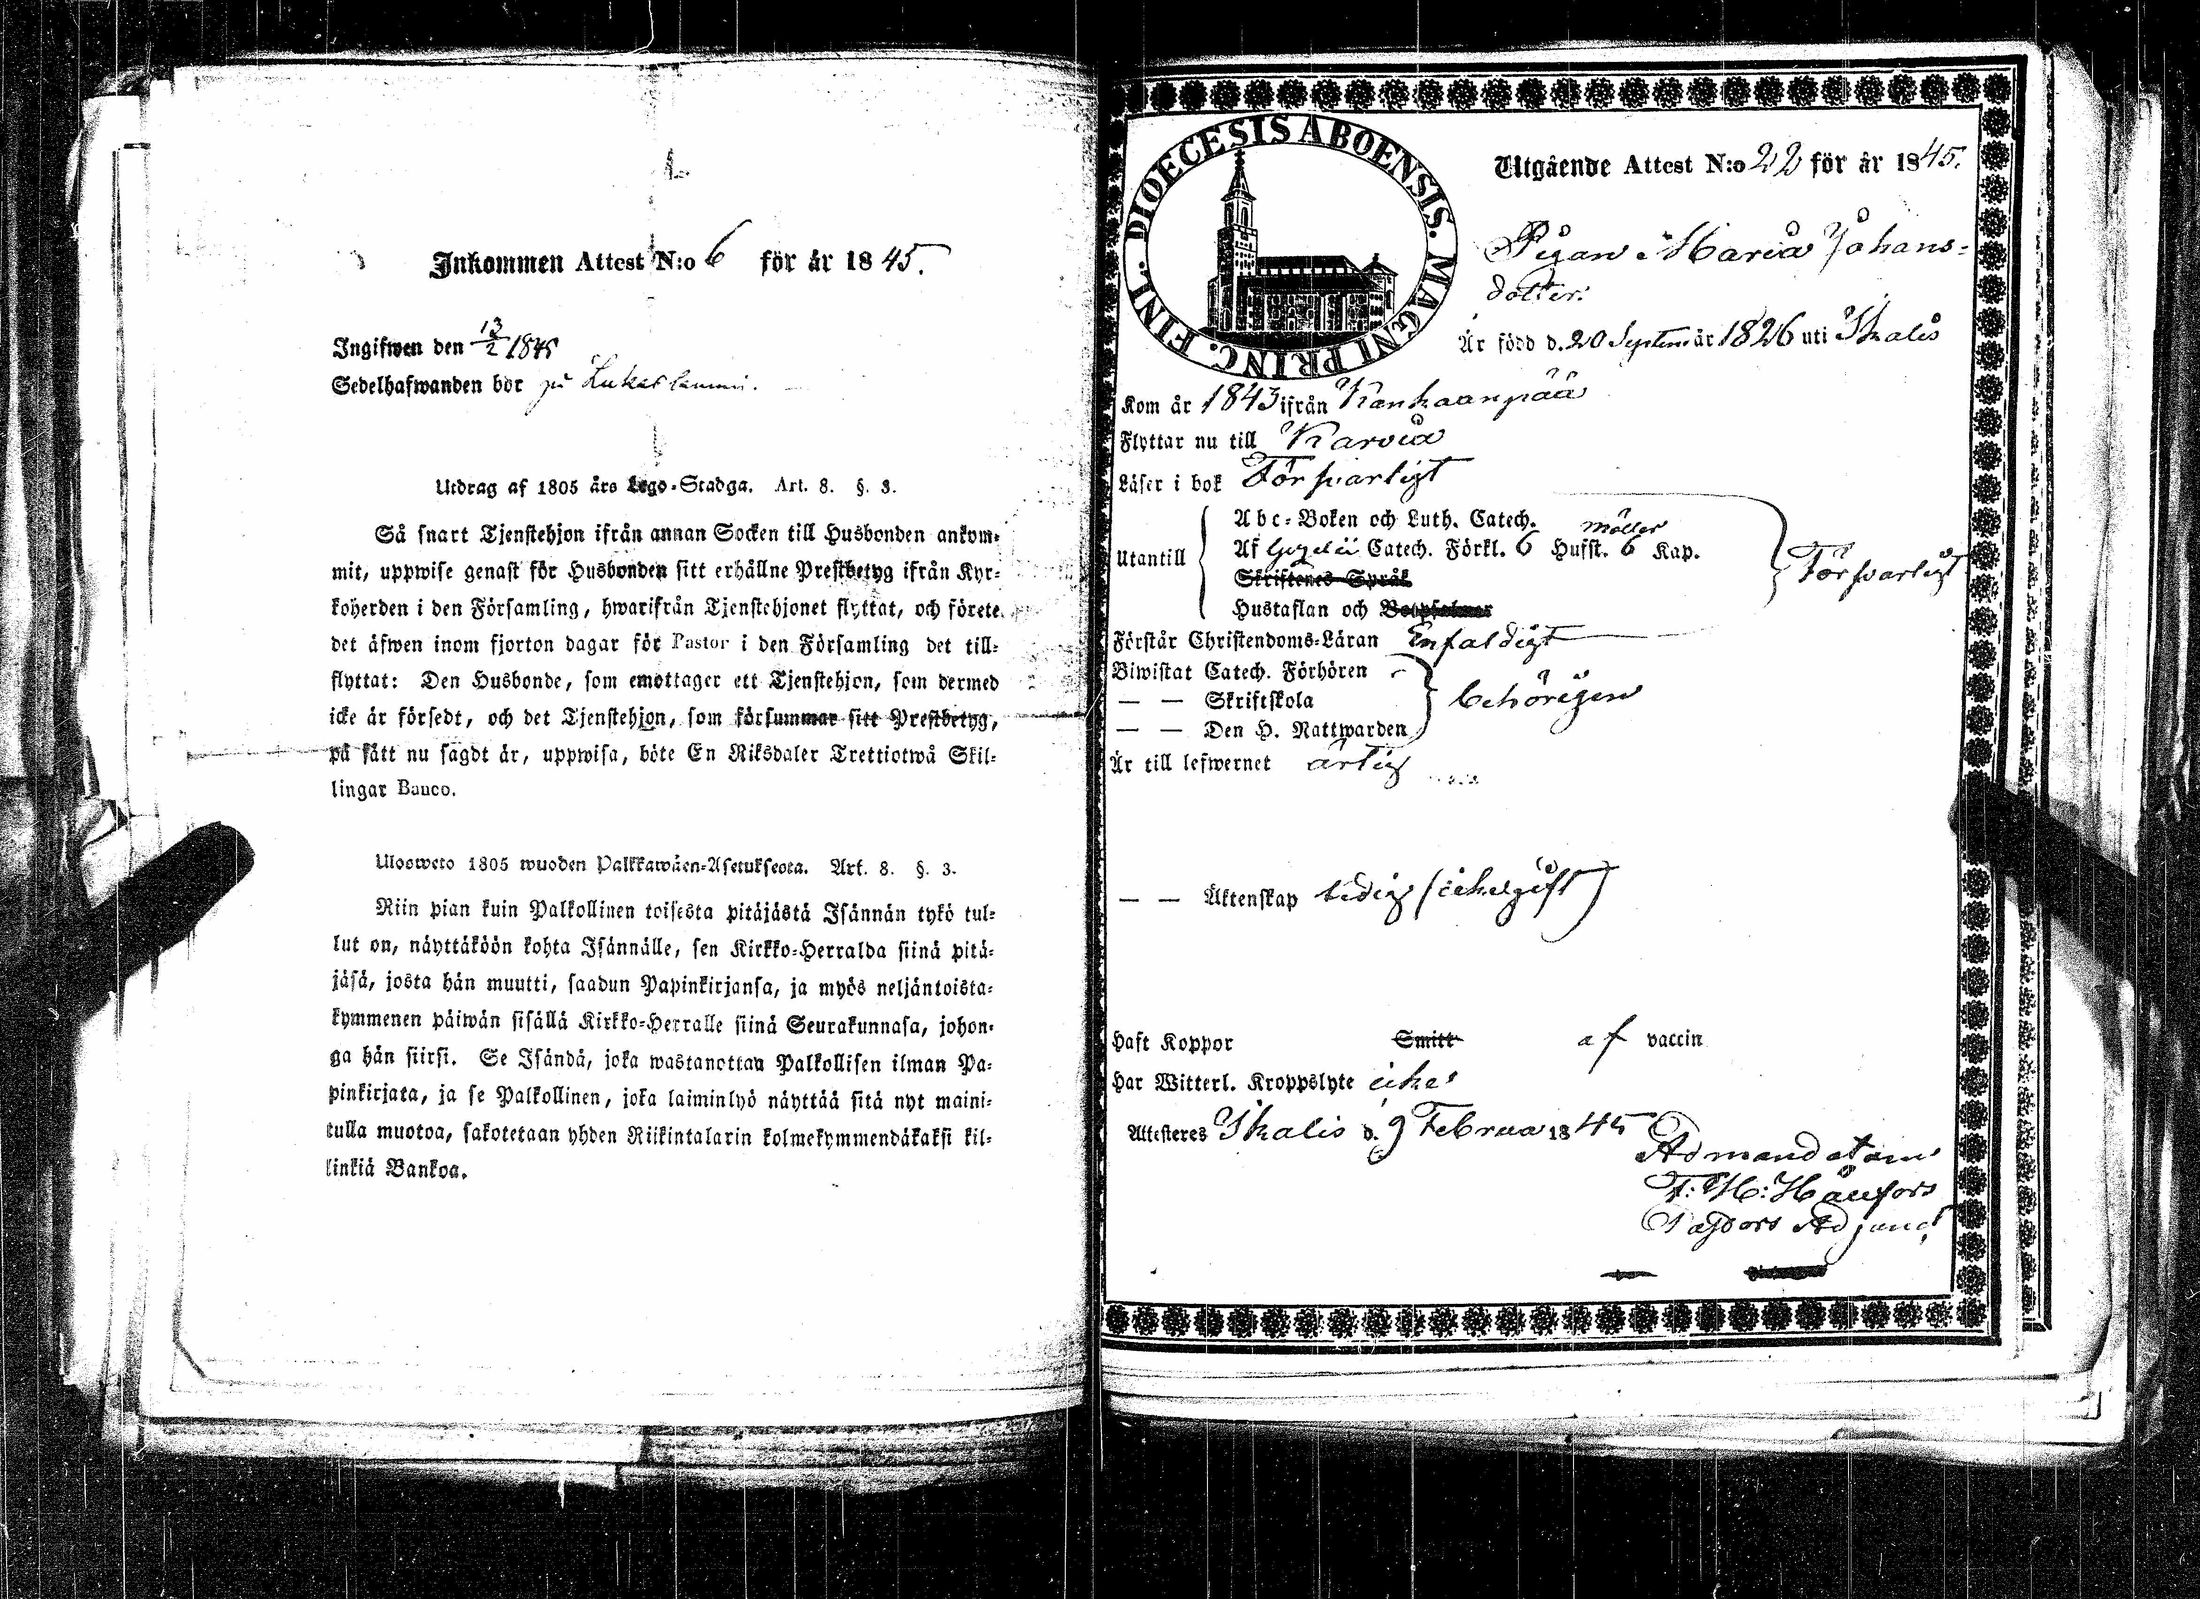 Inkommen Attest N:o 6 för år 1845.
Ingifwen den 13/2 1845
Sedelhafwanden bor på
Utdrag af 1805 års Lego-Stadga. Art. 8. §. 3.
Så snart Tjenstehjon ifrån annan Socken till Husbonden ankom-
mit, uppwise genast för Husbonden sitt erhållne Prestbetyg ifrån Kyr-
koherden i den Församling, hwarifrån Tjenstehjonet flyttat, och förete
det äfwen inom fjorton dagar för Pastor i den Församling det till-
flyttat: Den Husbonde, som emottager ett Tjenstehjon, som dermed
icke är försedt, och det Tjenstehjon, som försummar sitt Prestbetyg,
på sätt nu sagdt är, uppwisa, böte En Riksdaler Trettiotwå Skil-
lingar Banco.
Ulosweto 1805 wuoden Palkkawäen-Asetuksesta. Art. 8. §. 3.
Niin pian kuin Palkollinen toisesta pitäjästä Isännän tykö tul-
lut on, näyttäköön kohta Isännälle, sen Kirkko-Herralda siinä pitä-
jäsä, josta hän muutti, saadun Papinkirjansa, ja myös neljäntoista-
kymmenen päiwän sisällä Kirkko-Herralle siinä Seurakunnasa, johon-
ga hän siirsi. Se Isändä, joka wastanottaa Palkollisen ilman Pa-
pinkirjata, ja se Palkollinen, joka laiminlyö näyttää sitä nyt maini-
tulla muotoa, sakotetaan yhden Riikintalarin kolmekymmendäkaksi kil-
linkiä Bankoa.
DIOECESIS ABOENSIS. MAGNI PRINC. FINL.
Utgående Attest N:o 22 för år 1845.
Pigan Maria Johans-
dotter.
Är född d. 20 Septem år 1826 uti Ikalis
Kom år 1843 ifrån Kankaanpää
Flyttar nu till Karvia
Läser i bok Försvarligt
Utantill
Abc-Boken och Luth. Catech.
Af Catech. Förkl. 6 Husst. 6 Kap.
Skriftenes Språk
Hustaflan och
Försvarligt
Förstår Christendoms-Läran Enfaldigt
Biwistat Catech. Förhören
— — Skriftskola
— — Den H. Nattwarden
behörigen
Är till lefwernet ärlig
— — Äktenskap ledig (icke gift)
Haft Koppor Smitt af vaccin
Har Witterl. Kroppslyte icke
Attesteres Ikalis d. 9 Februa 1845
Ad mandatum
Pastors Adjunct